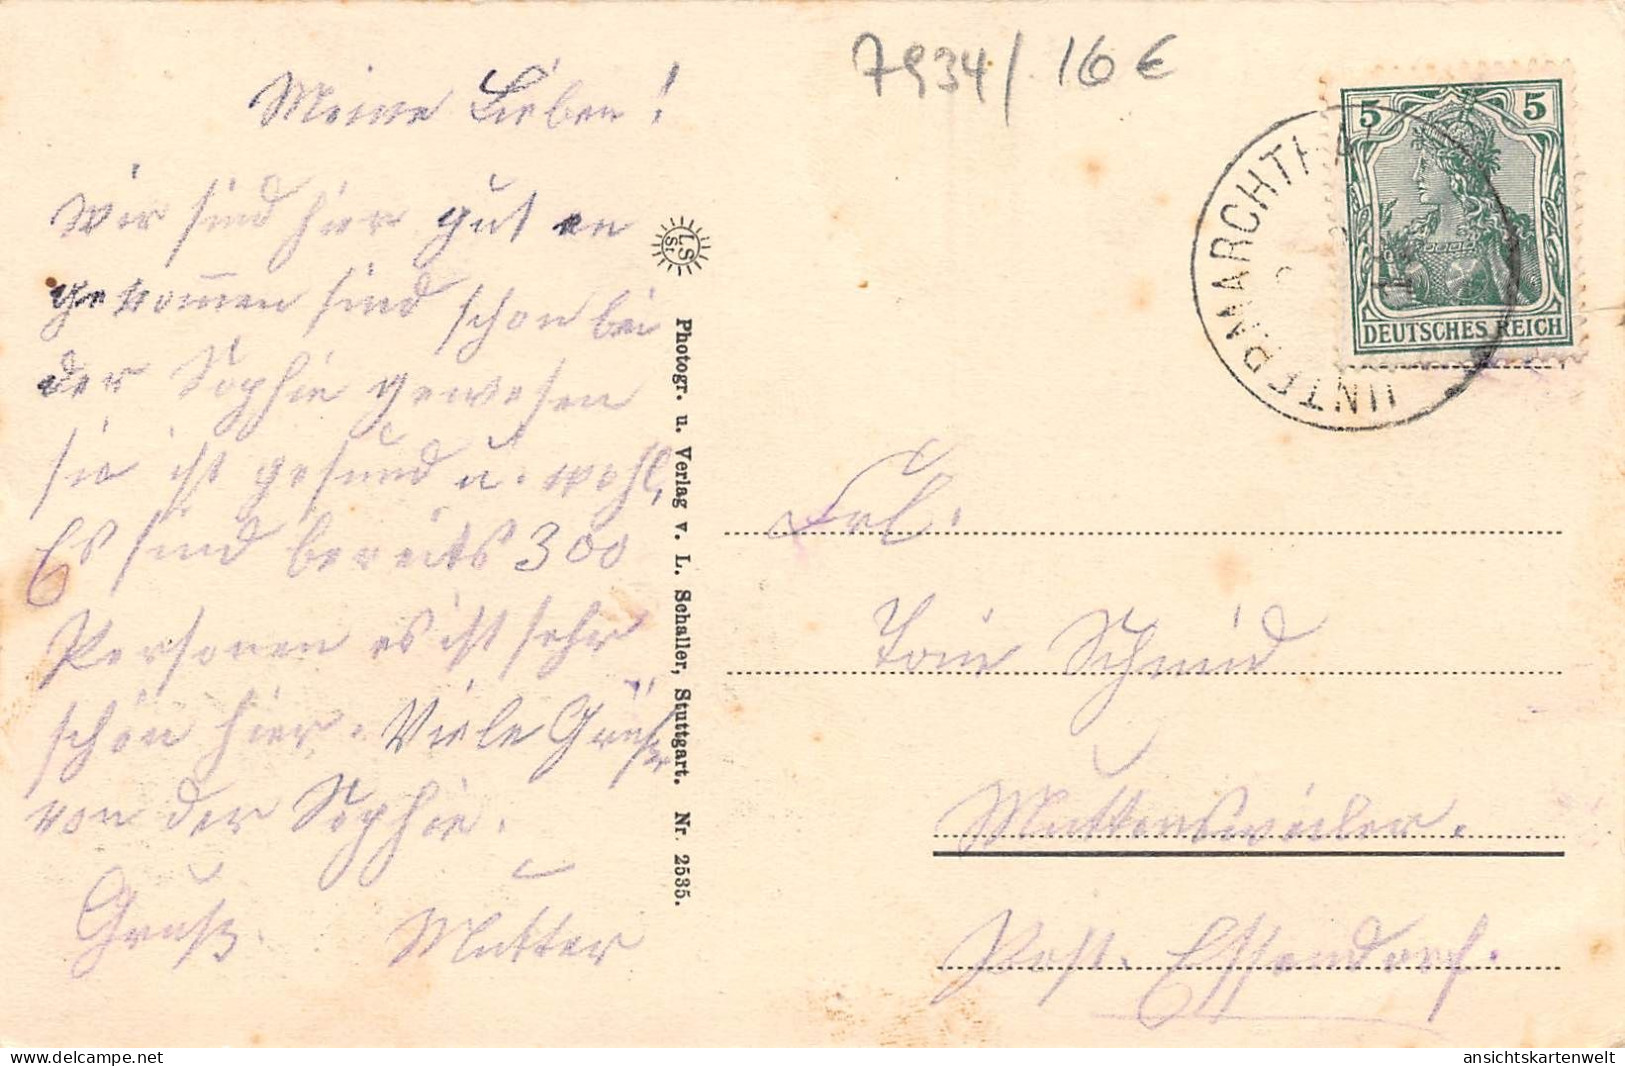 7934 / 16 €
Meine Lieben!
Wir sind hier gut an
gekommen sind schon bei
der Sophie gewesen
sie ist gesund u. wohl,
Es sind bereits 300
Personen es ist sehr
schön hier. Viele Grüße
von der Sophie.
Gruß. Mutter
LS
St
Photogr. u. Verlag v. L. Schaller, Stuttgart. Nr. 2535.
5 5
DEUTSCHES REICH
UNTERMARCHTHAL
Frl.
Schmid
Muttensweiler.
Post. Essendorf.
ansichtskartenwelt